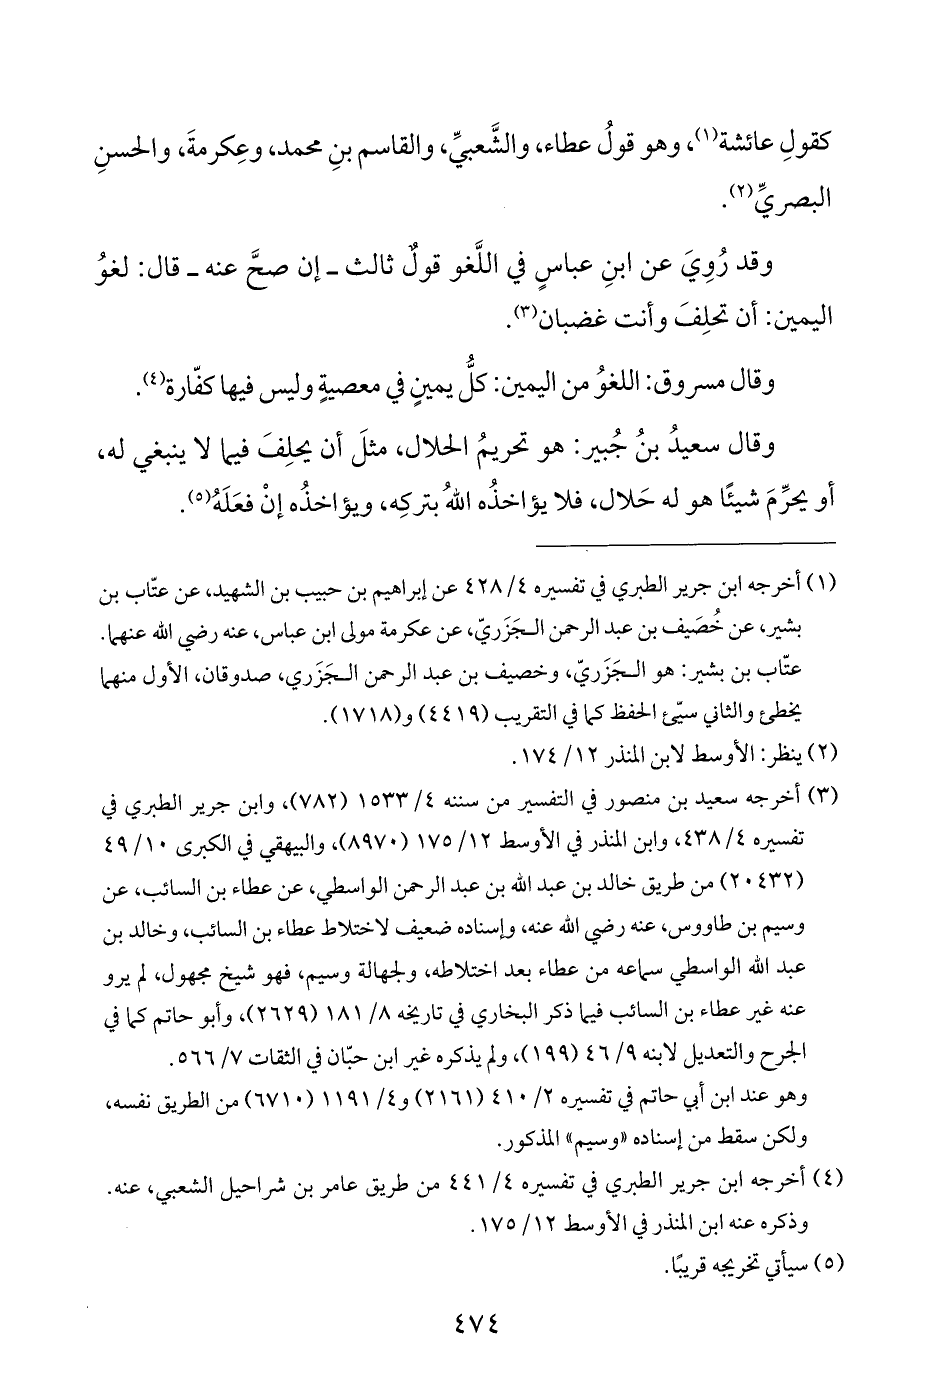 كقولِ عائشة(١)، وهو قولُ عطاء، والشَّعبيِّ، والقاسم بنِ محمد، وعِكرمةَ، والحسنِ
البصريِّ(٢).
وقد رُوِيَ عن ابنِ عباسٍ في اللَّغو قولٌ ثالث ـ إن صحَّ عنه ـ قال: لغوُ
اليمين: أن تحلِفَ وأنت غضبان(٣).
وقال مسروق: اللغوُ من اليمين: كلُّ يمينٍ في معصيةٍ وليس فيها كفّارة(٤).
وقال سعيدُ بنُ جُبير: هو تحريمُ الحلال، مثلَ أن يحلِفَ فيما لا ينبغي له،
أو يحرِّمَ شيئًا هو له حَلال، فلا يؤاخذُه اللهُ بتركِه، ويؤاخذُه إنْ فعَلَهُ(٥).
(١) أخرجه ابن جرير الطبري في تفسيره ٤/ ٤٢٨ عن إبراهيم بن حبيب بن الشهيد، عن عتّاب بن
بشير، عن خُصَيف بن عبد الرحمن الـجَزَريّ، عن عكرمة مولى ابن عباس، عنه رضي الله عنهما.
عتّاب بن بشير: هو الـجَزَريّ، وخصيف بن عبد الرحمن الـجَزَري، صدوقان، الأول منهما
يخطئ والثاني سيّئ الحفظ كما في التقريب (٤٤١٩) و(١٧١٨).
(٢) ينظر: الأوسط لابن المنذر ١٢/ ١٧٤.
(٣) أخرجه سعيد بن منصور في التفسير من سننه ٤/ ١٥٣٣ (٧٨٢)، وابن جرير الطبري في
تفسيره ٤/ ٤٣٨، وابن المنذر في الأوسط ١٢/ ١٧٥ (٨٩٧٠)، والبيهقي في الكبرى ١٠/ ٤٩
(٢٠٤٣٢) من طريق خالد بن عبد الله بن عبد الرحمن الواسطي، عن عطاء بن السائب، عن
وسيم بن طاووس، عنه رضي الله عنه، وإسناده ضعيف لاختلاط عطاء بن السائب، وخالد بن
عبد الله الواسطي سماعه من عطاء بعد اختلاطه، ولجهالة وسيم، فهو شيخ مجهول، لم يرو
عنه غير عطاء بن السائب فيما ذكر البخاري في تاريخه ٨/ ١٨١ (٢٦٢٩)، وأبو حاتم كما في
الجرح والتعديل لابنه ٩/ ٤٦ (١٩٩)، ولم يذكره غير ابن حبّان في الثقات ٧/ ٥٦٦.
وهو عند ابن أبي حاتم في تفسيره ٢/ ٤١٠ (٢١٦١) و٤/ ١١٩١ (٦٧١٠) من الطريق نفسه،
ولكن سقط من إسناده «وسيم» المذكور.
(٤) أخرجه ابن جرير الطبري في تفسيره ٤/ ٤٤١ من طريق عامر بن شراحيل الشعبي، عنه.
وذكره عنه ابن المنذر في الأوسط ١٢/ ١٧٥.
(٥) سيأتي تخريجه قريبًا.
٤٧٤